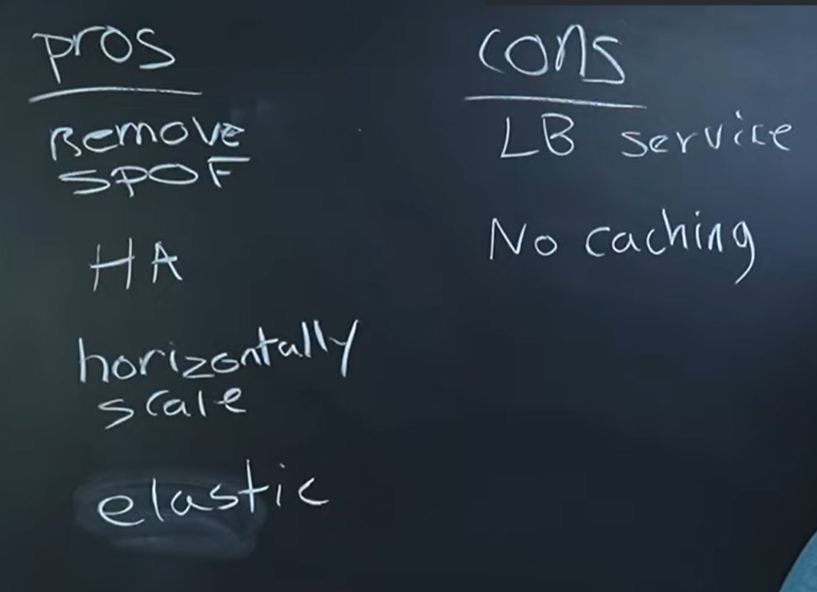 pros
Remove
SPOF
HA
horizontally
scale
elastic
cons
LB service
No caching